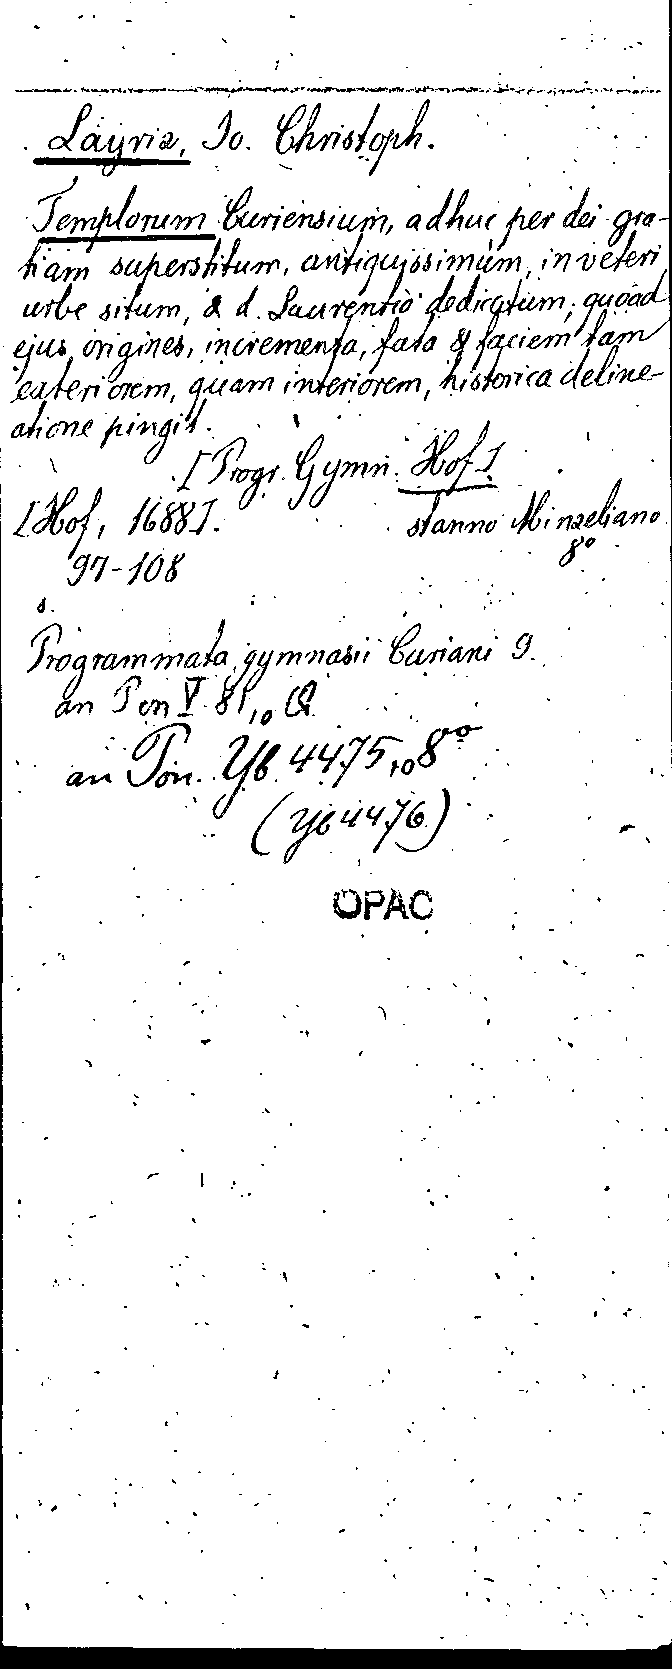 Layriz, Jo. Christoph.
Templorum Curiensium, adhuc per dei gra-
tiam superstitum, antiquissimum, in veteri
urbe situm, & d. Laurentio dedicatum, quoad
ejus origines, incrementa, fata & faciem tam
exteriorem, quam interiorem, historica deline-
atione pingit.
[Progr. Gymn. Hof]
[Hof, 1688]. stanno Minzeliano
8°
97-108
s.
Programmata gymnasii Curiani 9.
an Pon V 81,10 Q
an Pon. Yb 4475,10 8°°
(Yb 4476)
OPAC